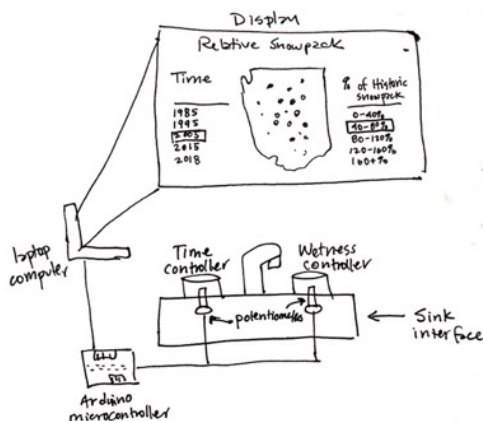 Display
Relative Snowpack
Time
1985
1995
2005
2015
2018
% of Historic
snowpack
0-40%
40-80%
80-120%
120-160%
160+%
laptop
computer
Time
controller
Wetness
controller
potentiometers
Sink
interface
Arduino
microcontroller